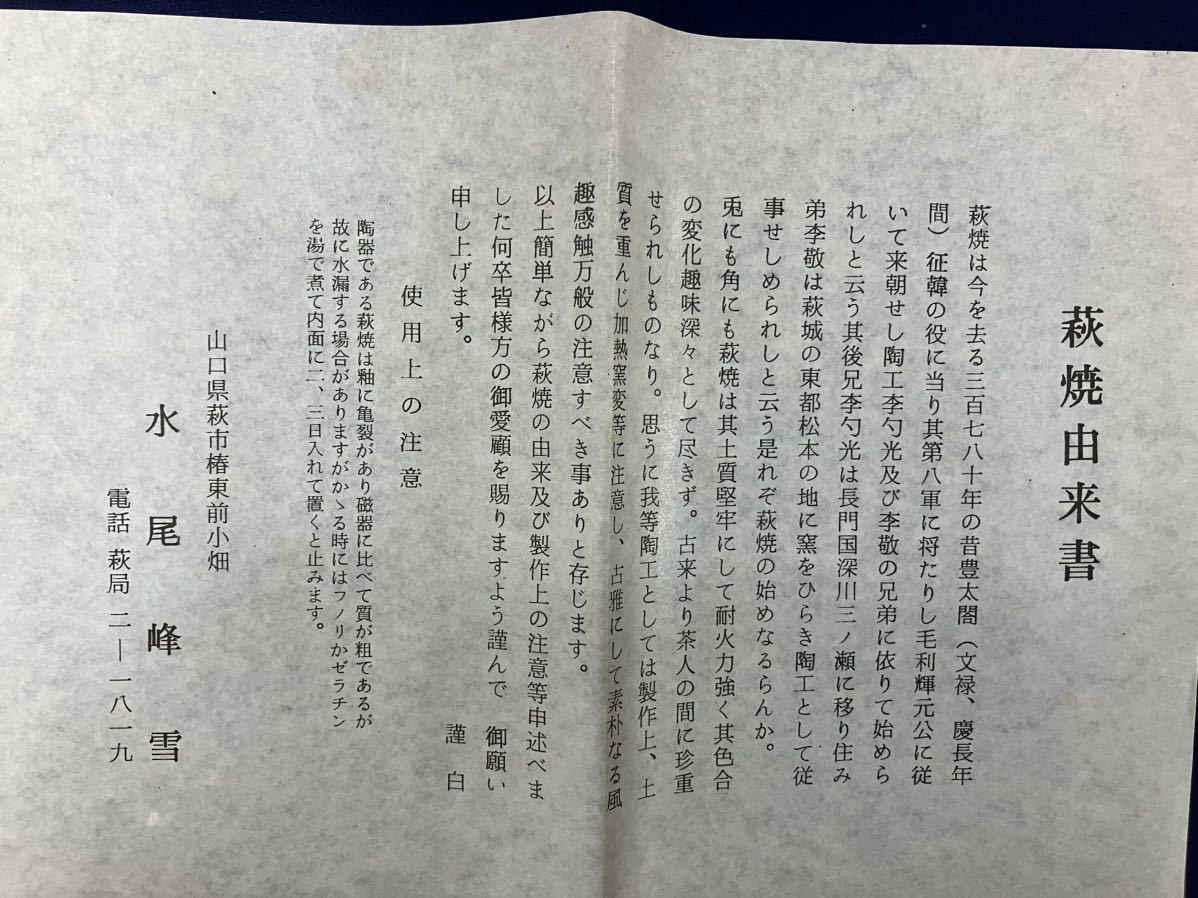 萩焼由来書
萩焼は今を去る三百七八十年の昔豊太閤（文禄、慶長年
間）征韓の役に当り其第八軍に将たりし毛利輝元公に従
いて来朝せし陶工李勺光及び李敬の兄弟に依りて始めら
れしと云う其後兄李勺光は長門国深川三ノ瀬に移り住み
弟李敬は萩城の東都松本の地に窯をひらき陶工として従
事せしめられしと云う是れぞ萩焼の始めなるらんか。
兎にも角にも萩焼は其土質堅牢にして耐火力強く其色合
の変化趣味深々として尽きず。古来より茶人の間に珍重
せられしものなり。思うに我等陶工としては製作上、土
質を重んじ加熱窯変等に注意し、古雅にして素朴なる風
趣感触万般の注意すべき事ありと存じます。
以上簡単ながら萩焼の由来及び製作上の注意等申述べま
した何卒皆様方の御愛顧を賜りますよう謹んで　御願い
申し上げます。　謹　白
使用上の注意
陶器である萩焼は釉に亀裂があり磁器に比べて質が粗であるが
故に水漏する場合がありますがかゝる時にはフノリかゼラチン
を湯で煮て内面に二、三日入れて置くと止みます。
山口県萩市椿東前小畑
水尾峰雪
電話　萩局　二―一八一九